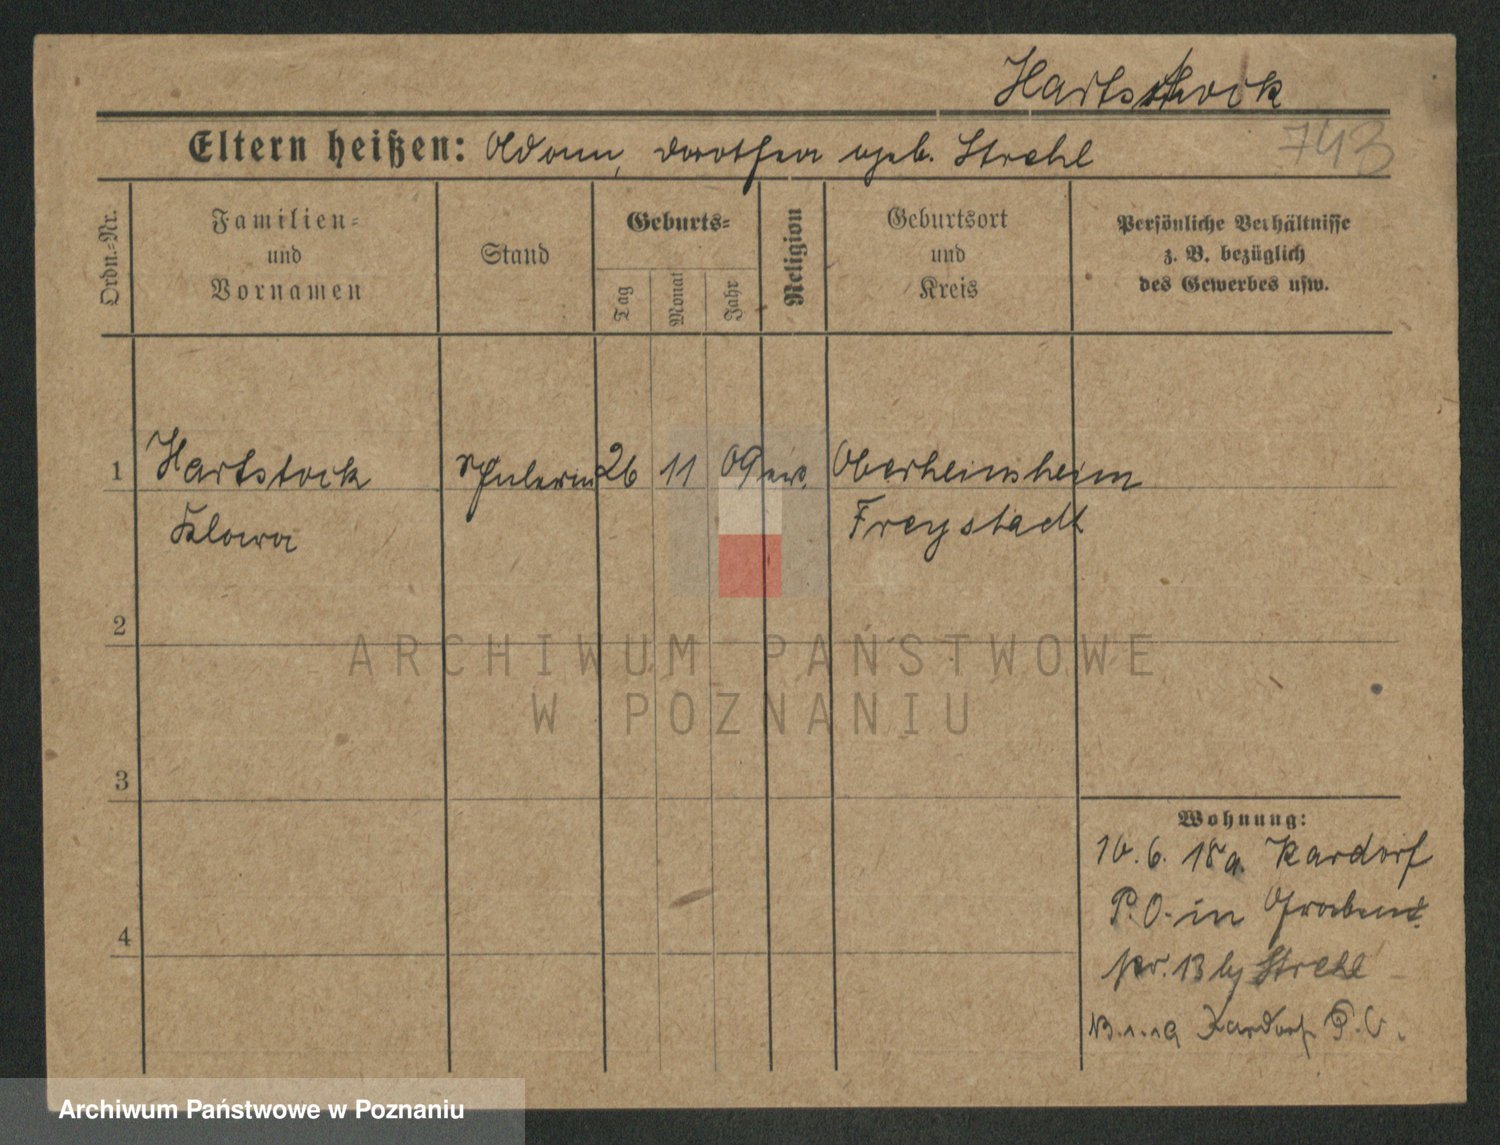 Hartstock
743
Eltern heißen: Adam, Dorothea geb. Strehl
Ordn.-Nr.
Familien-
und
Vornamen
Stand
Geburts-
Tag
Monat
Jahr
Religion
Geburtsort
und
Kreis
Persönliche Verhältnisse
z. B. bezüglich
des Gewerbes usw.
1 Hartstock Schülerin 26 11 09 ev. Oberheinsheim
Klara Freystadt
2
3
4
Wohnung:
10. 6. 18 a. Kardorf
P.O. in Graben
13 bj Strehl
Kardorf P.O.
ARCHIWUM PAŃSTWOWE
W POZNANIU
Archiwum Państwowe w Poznaniu